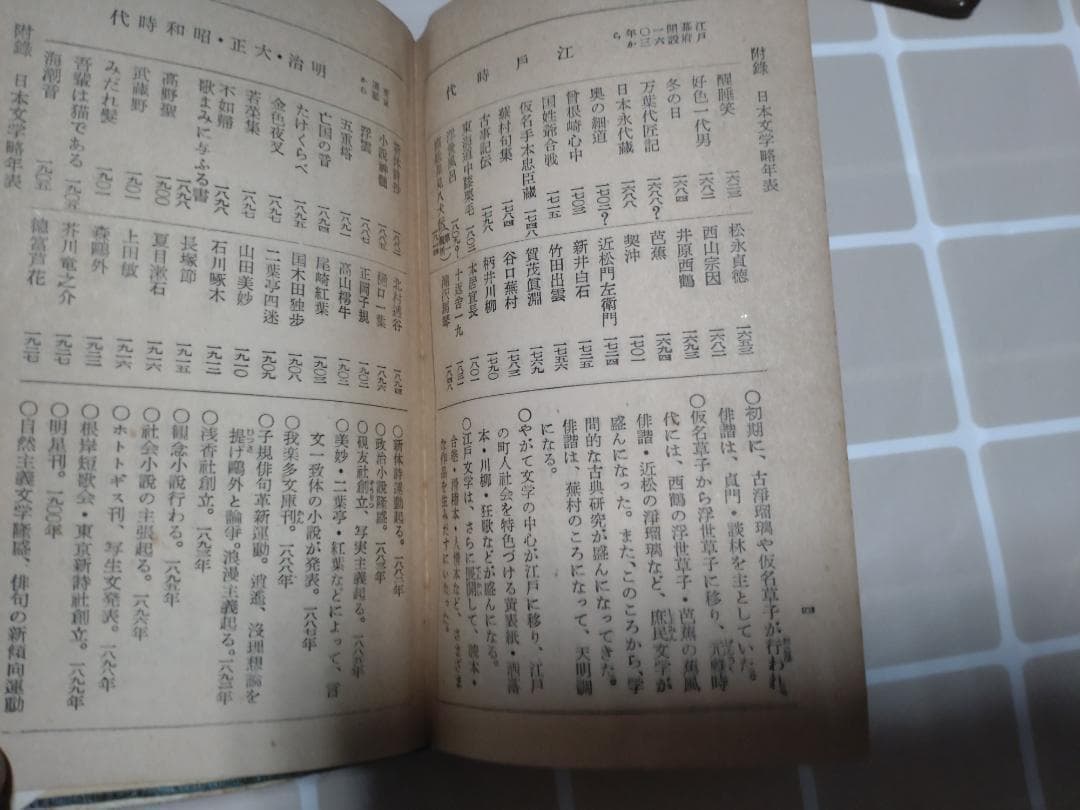 附錄 日本文学略年表
江戸時代
江戸幕府開設一六〇三年から
醒睡笑 一六二三
好色一代男 一六八二
冬の日 一六八四
万葉代匠記 一六八八?
日本永代蔵 一六八八
奥の細道 一七〇二?
曾根崎心中 一七〇三
国姓爺合戦 一七一五
仮名手本忠臣蔵 一七四八
蕪村句集 一七八四
古事記伝 一七九八
東海道中膝栗毛 一八〇二
浮世風呂 一八〇九?
松永貞徳 一六五三
西山宗因 一六八二
井原西鶴 一六九三
芭蕉 一六九四
契沖 一七〇一
近松門左衛門 一七二四
新井白石 一七二五
竹田出雲 一七五六
賀茂真淵 一七六九
谷口蕪村 一七八三
柄井川柳 一七九〇
本居宣長 一八〇一
十返舎一九 一八三一
滝沢馬琴 一八四八
〇初期に、古浄瑠璃や仮名草子が行われ、
俳諧は、貞門・談林を主としていた。
〇仮名草子から浮世草子に移り、元祿時
代には、西鶴の浮世草子・芭蕉の蕉風
俳諧・近松の浄瑠璃など、庶民文学が
盛んになった。また、このころから、学
問的な古典研究が盛んになってきた。
俳諧は、蕪村のころになって、天明調
になる。
〇やがて文学の中心が江戸に移り、江戸
の町人社会を特色づける黄表紙・洒落
本・川柳・狂歌などが盛んになる。
〇江戸文学は、さらに展開して、読本・
合巻・滑稽本・人情本など、さまざま
な作品を生みだすにいたった。
明治・大正・昭和時代
新体詩抄 一八八二
小説神髄
浮雲 一八八七
五重塔 一八九一
亡国の音 一八九四
たけくらべ 一八九五
金色夜叉 一八九七
若菜集 一八九七
不如帰 一八九八
歌よみに与ふる書 一八九八
高野聖 一九〇〇
武蔵野 一九〇一
みだれ髪 一九〇一
吾輩は猫である 一九〇五
海潮音 一九〇五
北村透谷 一八九四
樋口一葉 一八九六
正岡子規 一九〇二
高山樗牛 一九〇二
尾崎紅葉 一九〇三
国木田独歩 一九〇八
二葉亭四迷 一九〇九
山田美妙 一九一〇
石川啄木 一九一二
長塚節 一九一五
夏目漱石 一九一六
上田敏 一九一六
森鷗外
芥川竜之介 一九二七
徳富芦花 一九二七
〇新体詩運動起る。一八八二年
〇政治小説隆盛。一八八三年
〇硯友社創立、写実主義起る。一八八五年
〇美妙・二葉亭・紅葉などによって、言
文一致体の小説が発表。一八八七年
〇我楽多文庫刊。一八八八年
〇子規俳句革新運動。逍遥、没理想論を
提げ鷗外と論争。浪漫主義起る。一八九二年
〇浅香社創立。一八九三年
〇観念小説行わる。一八九五年
〇社会小説の主張起る。一八九六年
〇ホトトギス刊、写生文発表。一八九八年
〇根岸短歌会・東京新詩社創立。一八九九年
〇明星刊。一九〇〇年
〇自然主義文学隆盛、俳句の新傾向運動
附錄 日本文学略年表